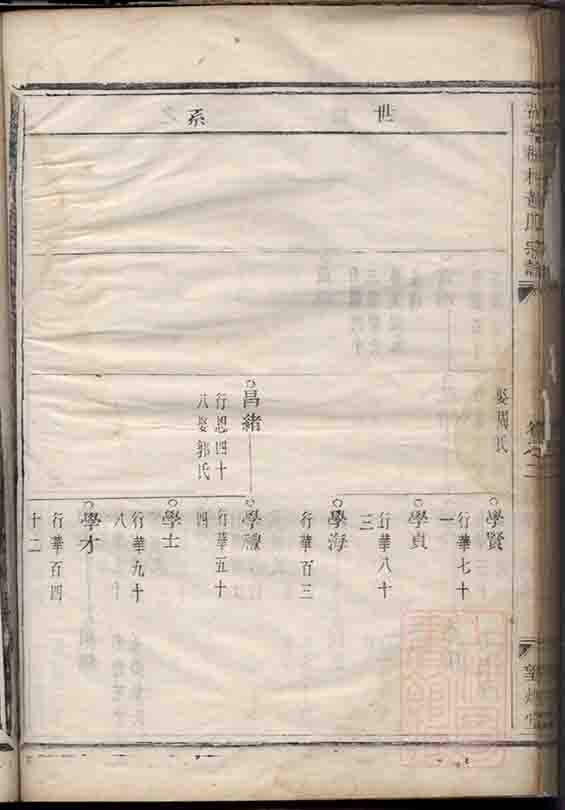 世系
娶周氏
學賢
行華七十
一
學貞
行華八十
三
學海
行華百三
昌緒
行恩四十
八娶郭氏
行華五十
四
學士
行華九十
八
學才
行華百四
十二
卷之二